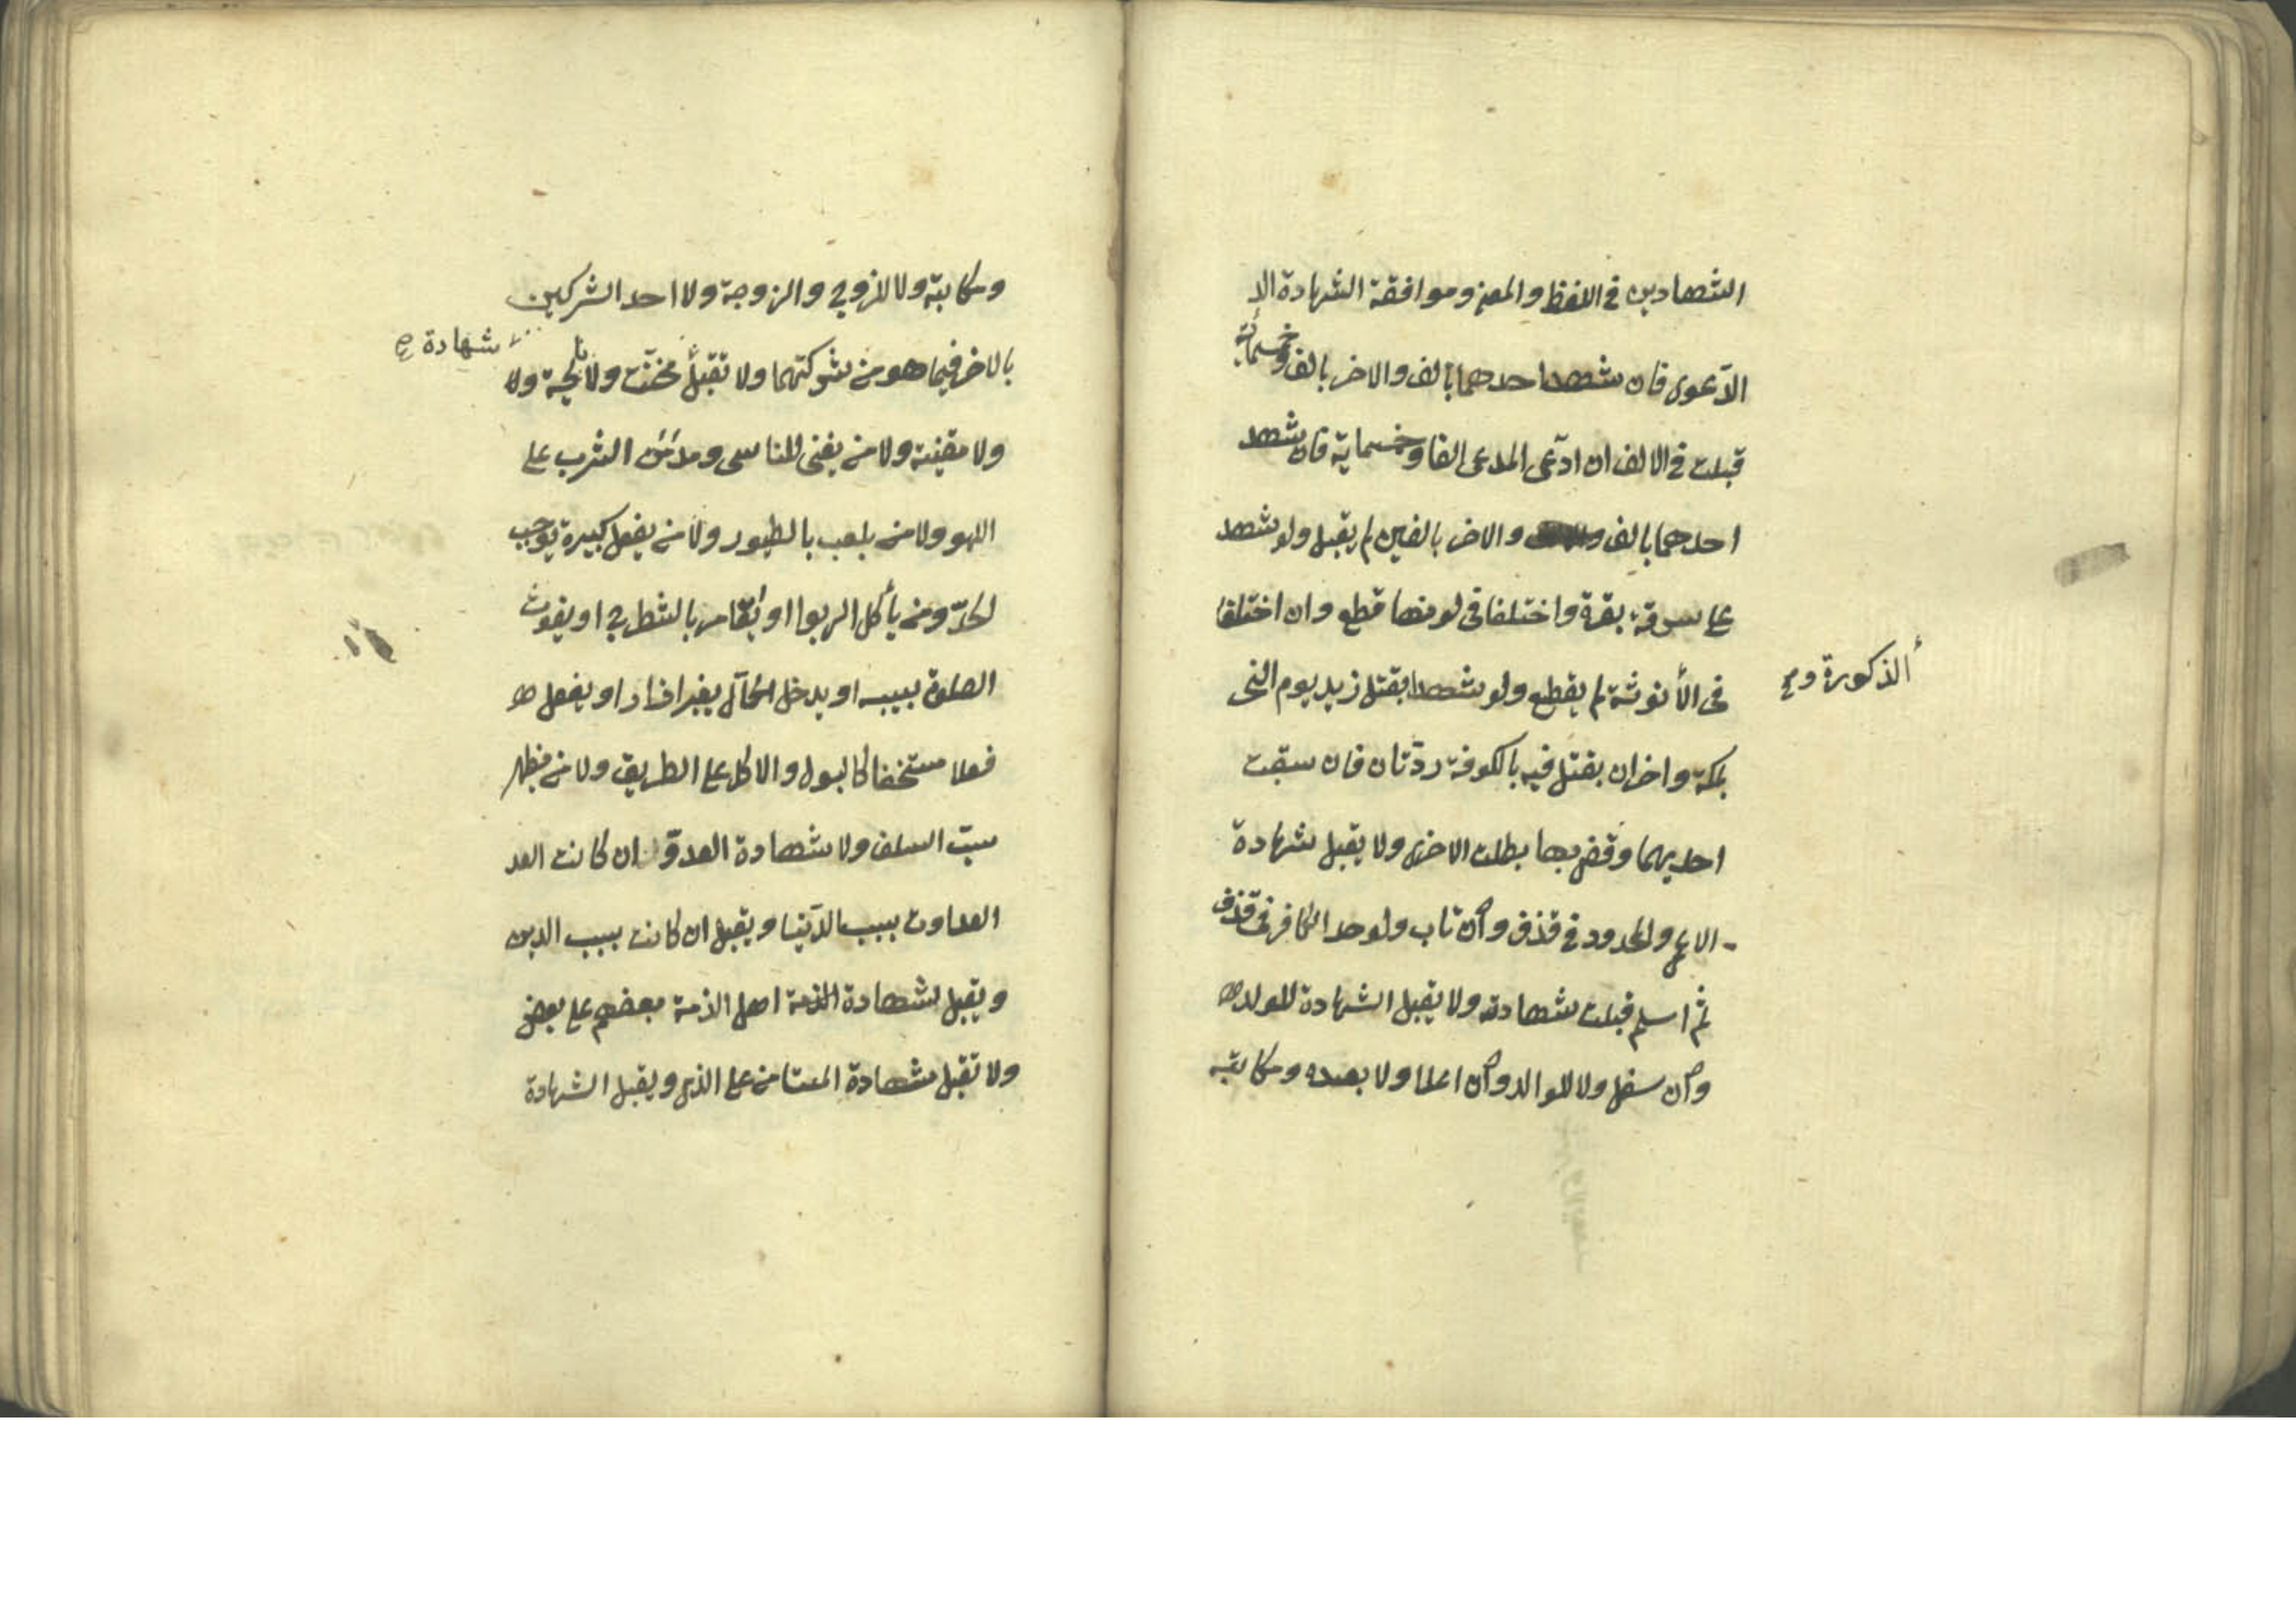 الشهادين في اللفظ والمعنى وموافقة الشهادة الد
الدّعوى فان شهد احدهما بالف والاخر بالف وخمسمائة
قبلت في الالف ان ادّعى المدعى الفا وخمسماية فان شهد
احدهما بالف والاخر بالفين لم يقبل ولو شهد
على سرقة بقرة واختلفا في لونها قطع وان اختلفا
في الأنوثة لم يقطع ولو شهدا بقتل زيد يوم النحر
الذكورة و
بمكة واخران بقتل فيه بالكوفة ردّتان فان سبقت
احديهما وقضى بها بطلت الاخرى ولا يقبل شهادة
الاعمى والمحدود في قذف وان تاب ولو حد الكافر في قذف
ثم اسلم قبلت شهادته ولا يقبل الشهادة للولد
وان سفل ولا للوالد وان اعلا ولا بعبده ومكاتبه
ومكاتبة ولا للزوج والزوجة ولا احد الشركين
شهادة
بالاخر فيما هو من شركتهما ولا تقبل مخنّث ولا نايحة ولا
ولا مغنية ولا من يغنى للناس ومدمن الشرب على
اللهو ولا من يلعب بالطيور ولا من يفعل كبيرة يوجب
لحدّ ومن يأكل الربوا او يقامر بالشطرنج او يفوت
الصلوة بسببه او يدخل الحمّام بغير ازار او يفعل
فعلا مستخفا كالبول والاكل على الطريق ولا من يظهر
سبّ السلف ولا شهادة العدوّ ان كانت العد
العداوت بسبب الدّنيا ويقبل ان كانت بسبب الدين
ويقبل شهادة الذمة اهل الذمة بعضهم على بعض
ولا تقبل شهادة المستامن على الذمى ويقبل الشهادة